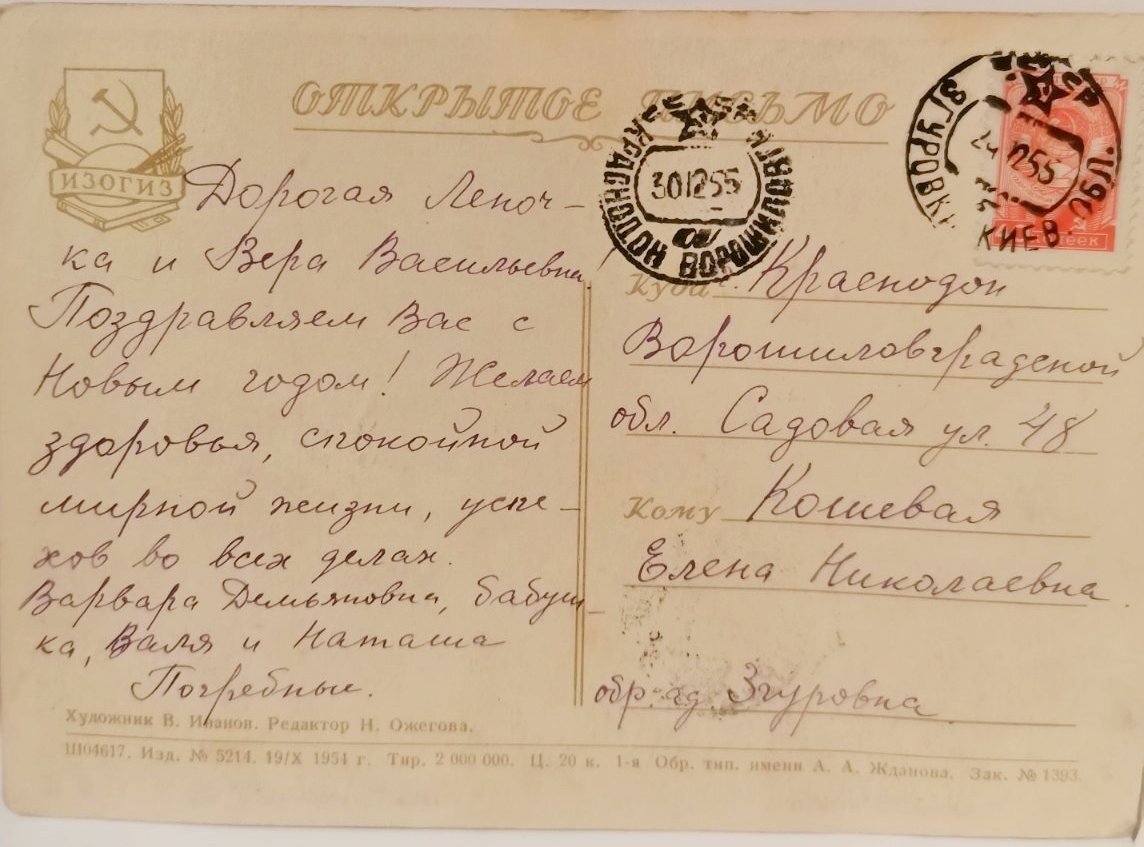 ОТКРЫТОЕ ПИСЬМО
ИЗОГИЗ
Дорогая Леноч-
ка и Вера Васильевна!
Поздравляем Вас с
Новым годом! Желаем
здоровья, спокойной
мирной жизни, успе-
хов во всех делах.
Варвара Демьяновна, бабуш-
ка, Валя и Наташа
Погребные.
КРАСНОДОН ВОРОШИЛОВГР
301255
ЗГУРОВКА КИЕВ.
1255
Куда Краснодон
Ворошиловградской
обл. Садовая ул. 48
Кому Кошевая
Елена Николаевна
обр. ад Згуровка
Художник В. Иванов. Редактор Н. Ожегова.
Ш04617. Изд. № 5214. 19/X 1954 г. Тир. 2 000 000. Ц. 20 к. 1-я Обр. тип. имени А. А. Жданова. Зак. № 1393.